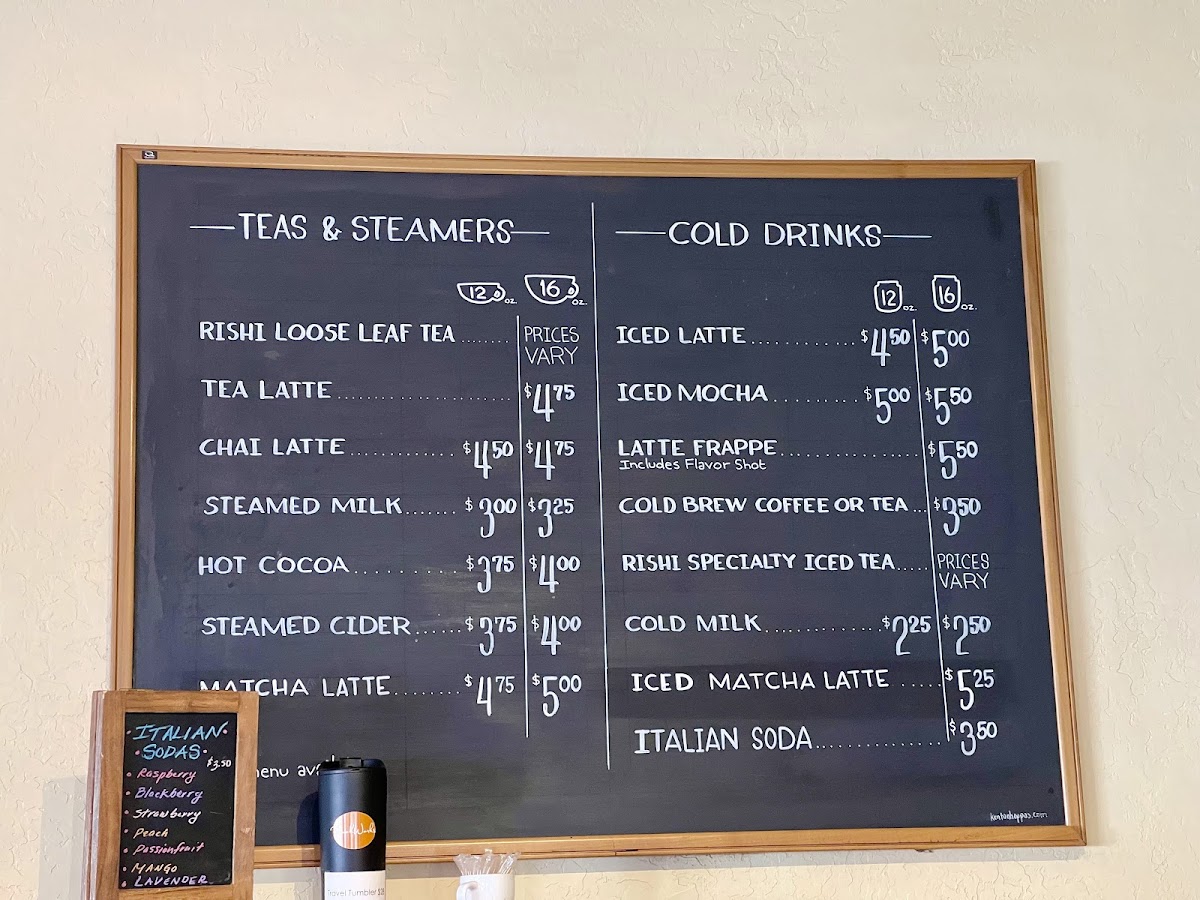 TEAS & STEAMERS
12 oz. 16 oz.
RISHI LOOSE LEAF TEA....... PRICES VARY
TEA LATTE.................... $4.75
CHAI LATTE............ $4.50 $4.75
STEAMED MILK...... $3.00 $3.25
HOT COCOA.......... $3.75 $4.00
STEAMED CIDER...... $3.75 $4.00
MATCHA LATTE........ $4.75 $5.00
COLD DRINKS
12 oz. 16 oz.
ICED LATTE............ $4.50 $5.00
ICED MOCHA......... $5.00 $5.50
LATTE FRAPPE................ $5.50
Includes Flavor Shot
COLD BREW COFFEE OR TEA.. $3.50
RISHI SPECIALTY ICED TEA..... PRICES VARY
COLD MILK............ $2.25 $2.50
ICED MATCHA LATTE ...... $5.25
ITALIAN SODA............. $3.50
ITALIAN
SODAS
$3.50
Raspberry
Blackberry
Strawberry
Peach
Passionfruit
MANGO
LAVENDER
menu
Travel Tumbler